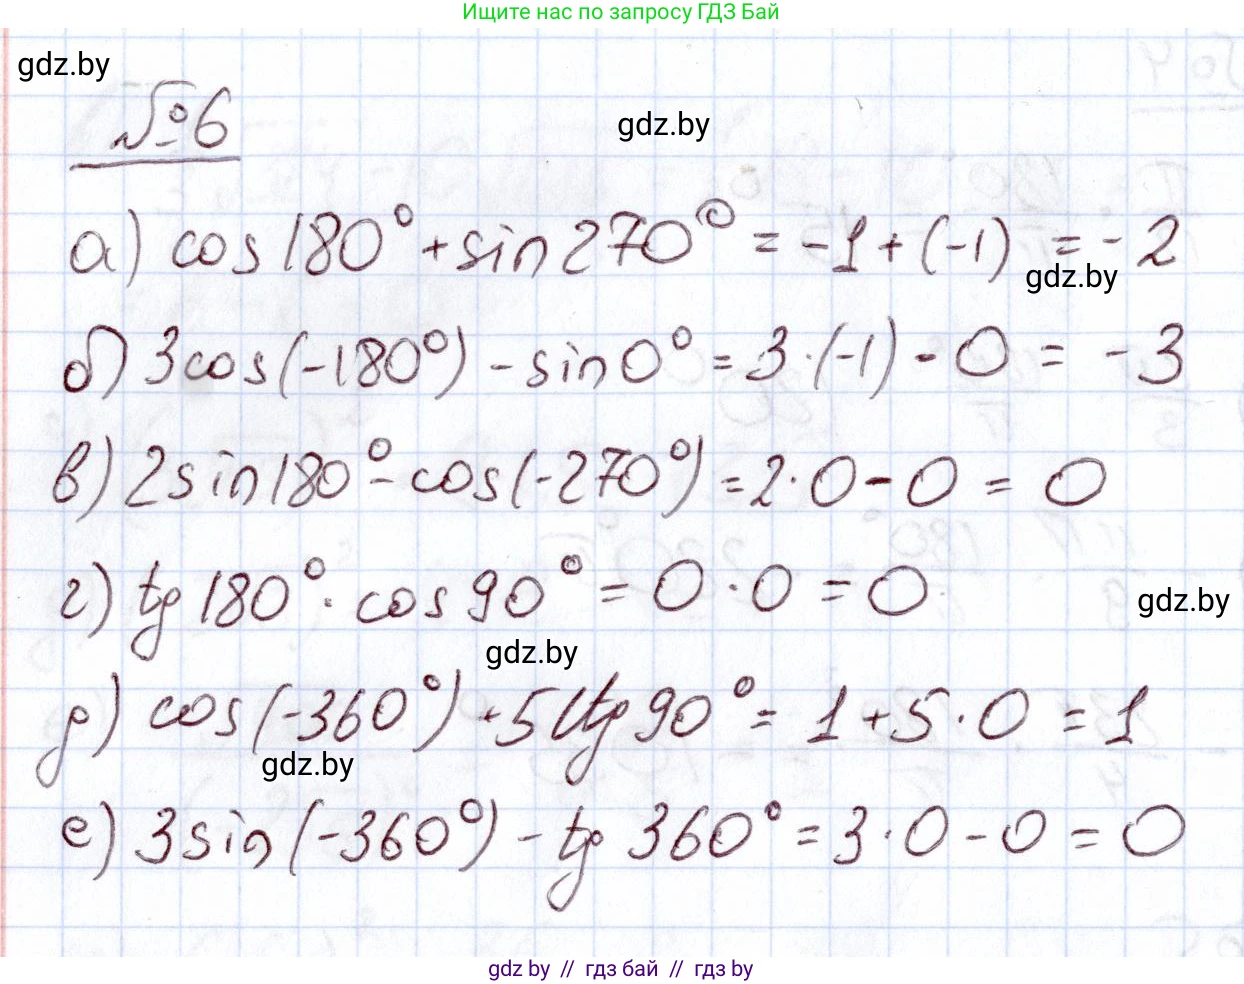 Ищите нас по запросу ГДЗ Бай
gdz.by
№6
gdz.by
а) cos 180° + sin 270° = -1 + (-1) = -2
gdz.by
б) 3cos(-180°) - sin 0° = 3·(-1) - 0 = -3
в) 2sin 180° - cos(-270°) = 2·0 - 0 = 0
г) tg 180° · cos 90° = 0·0 = 0
gdz.by
gdz.by
д) cos(-360°) + 5ctg 90° = 1 + 5·0 = 1
gdz.by
е) 3sin(-360°) - tg 360° = 3·0 - 0 = 0
gdz by // гдз бай // гдз by